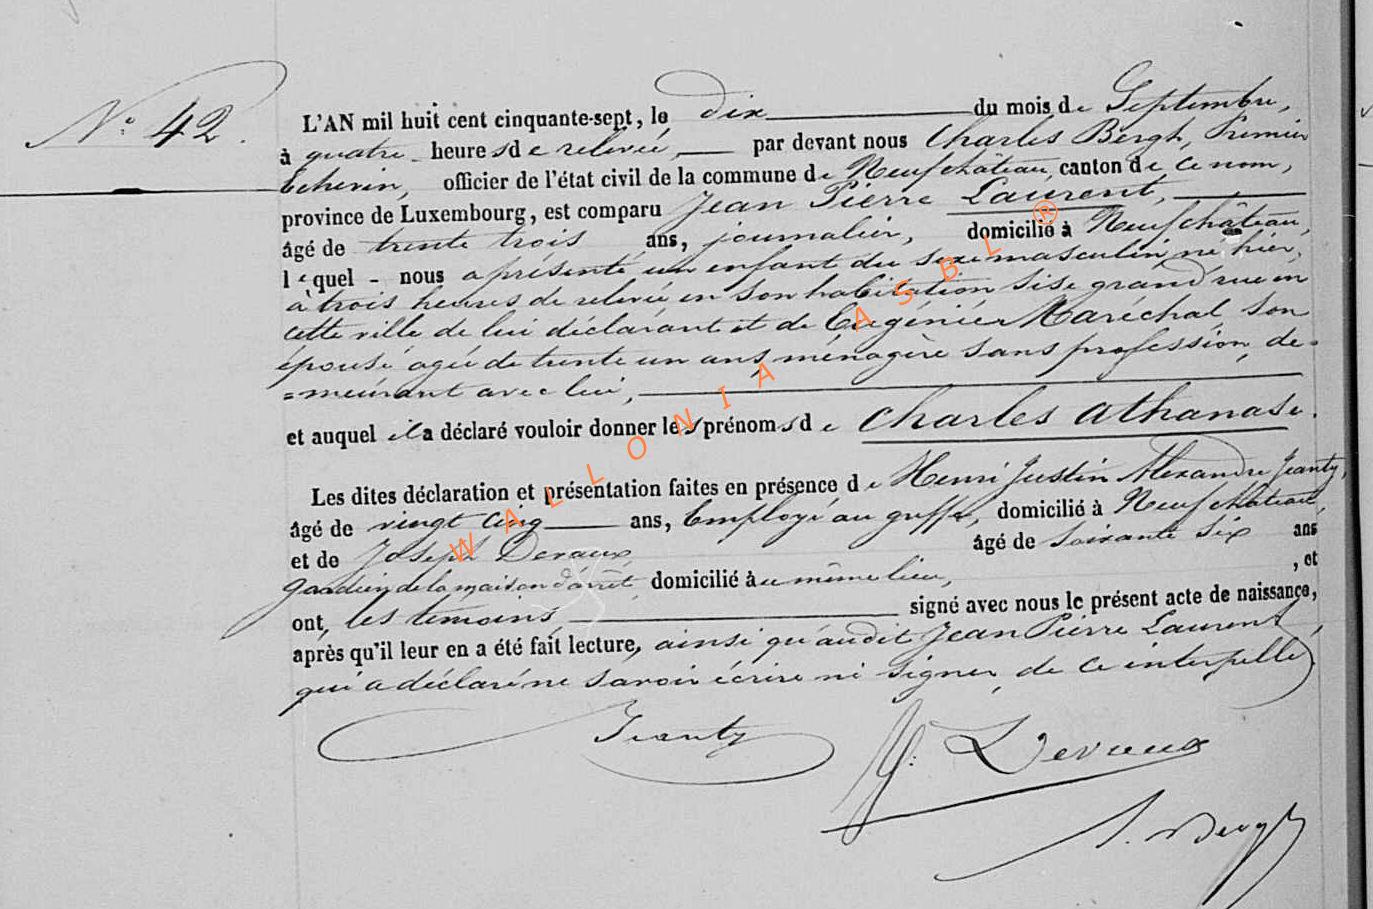 N° 42.
L'AN mil huit cent cinquante-sept, le dix du mois de Septembre,
à quatre heures de relevée, par devant nous Charles Bergh, Premier
Echevin, officier de l'état civil de la commune de Neufchâteau, canton de ce nom,
province de Luxembourg, est comparu Jean Pierre Laurent,
âgé de trente trois ans, journalier, domicilié à Neufchâteau,
lequel nous a présenté un enfant du sexe masculin, né hier,
à trois heures de relevée en son habitation sise grand'rue en
cette ville de lui déclarant et de Eugénie Maréchal son
épouse agée de trente un ans, ménagère sans profession, de=
=meurant avec lui,
et auquel il a déclaré vouloir donner les prénoms de Charles Athanase.
Les dites déclaration et présentation faites en présence de Henri Justin Alexandre Jeanty,
âgé de vingt cinq ans, Employé au greffe, domicilié à Neufchâteau,
et de Joseph Devaux âgé de soixante six ans
gardien de la maison d'arrêt, domicilié au même lieu, , et
ont, les témoins signé avec nous le présent acte de naissance,
après qu'il leur en a été fait lecture, ainsi qu'audit Jean Pierre Laurent,
qui a déclaré ne savoir écrire ni signer, de ce interpellé,
Jeanty
Devaux
Bergh
WALLONIA ASBL ®